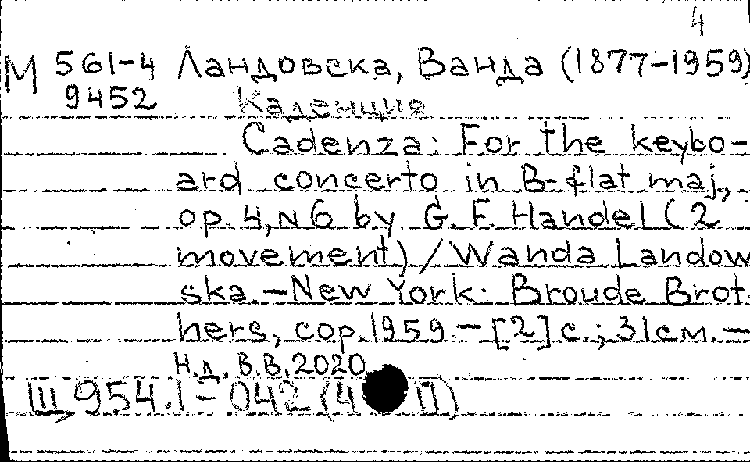 4
М 561-4 Ландовска, Ванда (1877-1959)
9452 Каденция
Cadenza: For the keybo-
ard concerto in B-flat maj.,
op. 4, N 6 by G. F. Handel (2
movement) / Wanda Landow
ska. - New York: Broude Brot
hers, cop. 1959. - [2] с.; 31 см. -
Н.д. В.В. 2020
Ш 954.1-042 (4 П)